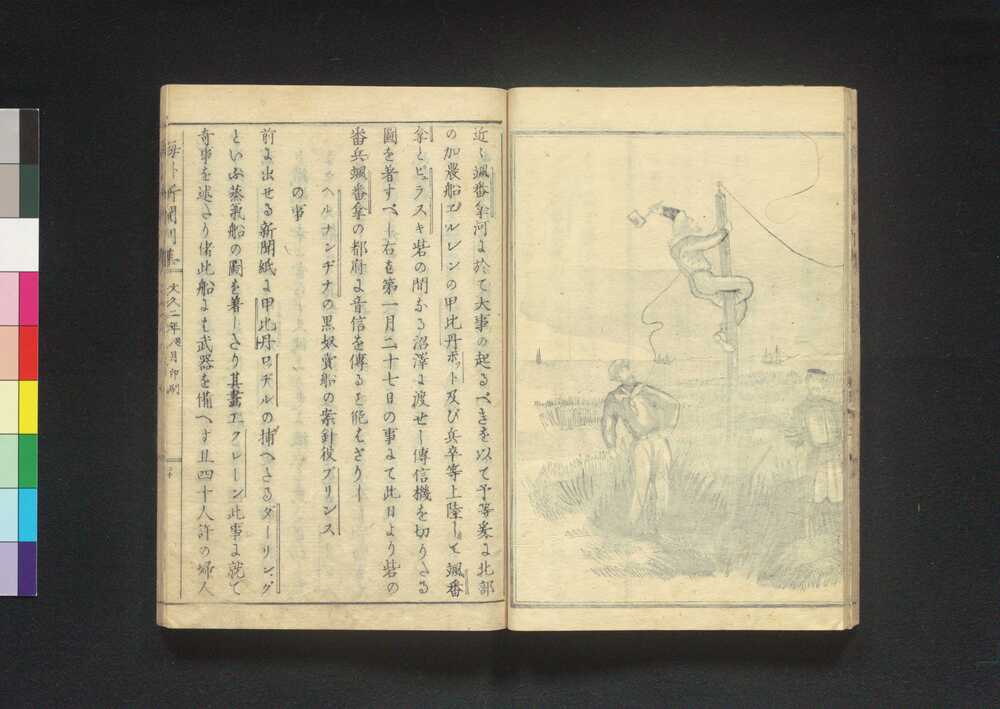 近く颯番拿河に於て大事の起るべきを以て予等爰に北部
の加農船エルレンの甲比丹ボット及び兵卒等上陸して颯番
拿とピラスキ砦の間なる沼澤に渡せし傳信機を切りたる
圖を著すべし右を第一月二十七日の事にて此日より砦の
番兵颯番拿の都府に音信を傳ると能はざりし
ヘルナンヂナの黒奴賣船の案針役プリンス
の事
前に出せる新聞紙に甲比丹ロヂルの捕へたるダーリング
といふ蒸氣船の圖を著したり其畫工クレーン此事に就て
奇事を述たり偖此船には武器を備へず且四十人許の婦人
新聞 文久二年 月印刷